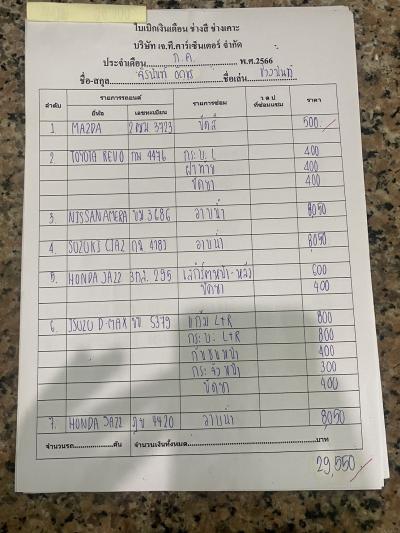 ใบเบิกเงินเดือน ช่างสี ช่างเคาะ
บริษัท เจ.ที.คาร์เซ็นเตอร์ จำกัด
ประจำเดือน ก.ค. พ.ศ.2566
ชื่อ-สกุล ชื่อเล่น
ลำดับ รายการรถยนต์ รายการซ่อม ว ด ป ที่ซ่อมแซม ราคา
ยี่ห้อ เลขทะเบียน
1 MAZDA 3923 ขัดสี 500
2 TOYOTA REVO กท 4476 กระบะ L 400
ฝาท้าย 400
ขัดยา 400
3. NISSAN AMERA 3686 อาบน้ำ 8050
4. SUZUKI CIAZ กน 4183 อาบน้ำ 8050
5. HONDA JAZZ 3กส. 295 600
ขัดยา 400
6. ISUZU D-MAX 5379 แก้ม L+R 800
กระบะ L+R 800
กันชนหน้า 400
กระจังหน้า 300
ขัดยา 400
7. HONDA JAZZ 4420 อาบน้ำ 8050
จำนวนรถ คัน จำนวนเงินทั้งหมด บาท
29,550